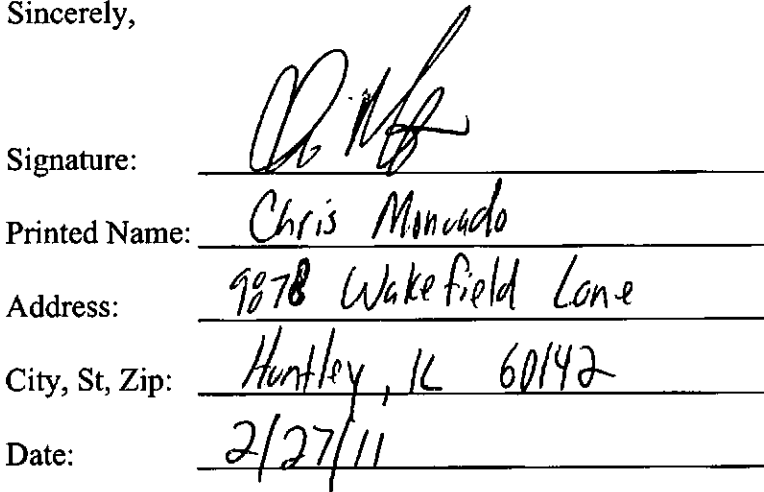 Sincerely,
Signature:
Printed Name: Chris Moncado
Address: 9878 Wakefield Lane
City, St, Zip: Huntley, IL 60142
Date: 2/27/11